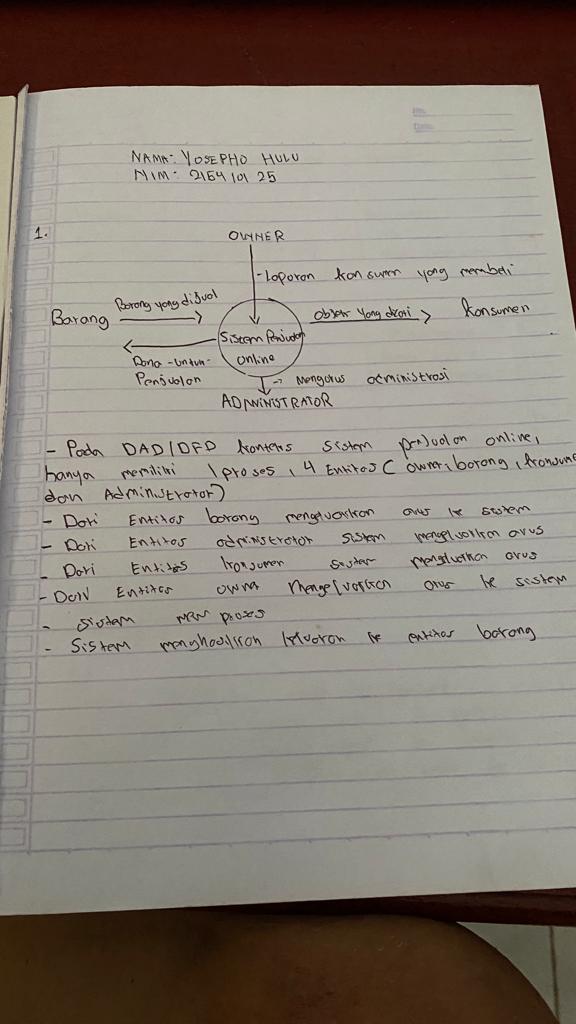 NAMA: YOSEPHO HULU
NIM: 2154 101 25
1.
OWNER
- Laporan konsumen yang membeli
Barang
Barang yang dijual
Sistem Penjualan
online
Objek yang dicari
Konsumen
Dana - untuk -
Penjualan
-> Mengurus administrasi
ADMINISTRATOR
- Pada DAD/DFD konteks sistem penjualan online,
hanya memiliki 1 proses, 4 Entitas (owner, barang, konsume
dan Administrator)
- Dari Entitas barang mengeluarkan arus ke sistem
- Dari Entitas administrator sistem mengeluarkan arus
- Dari Entitas konsumen sistem mengeluarkan arus
- Dari Entitas owner mengeluarkan arus ke sistem
- Sistem proses
- Sistem menghasilkan keluaran ke entitas barang